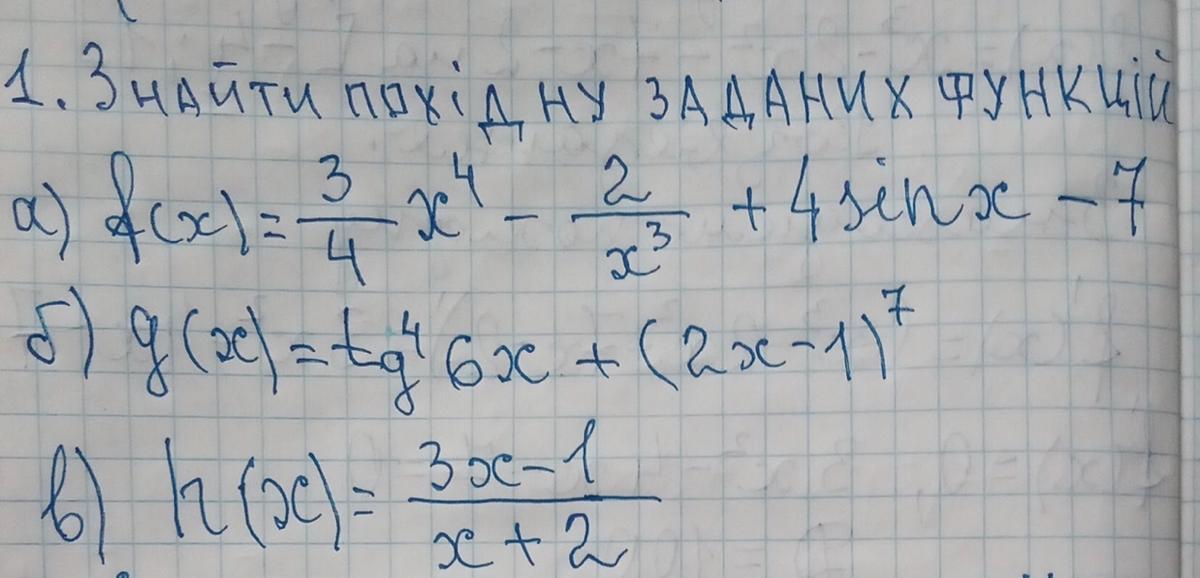 1. Знайти похідну заданих функцій
а) f(x) = 3/4 x⁴ - 2/x³ + 4 sin x - 7
б) g(x) = tg⁴ 6x + (2x - 1)⁷
в) h(x) = (3x - 1)/(x + 2)